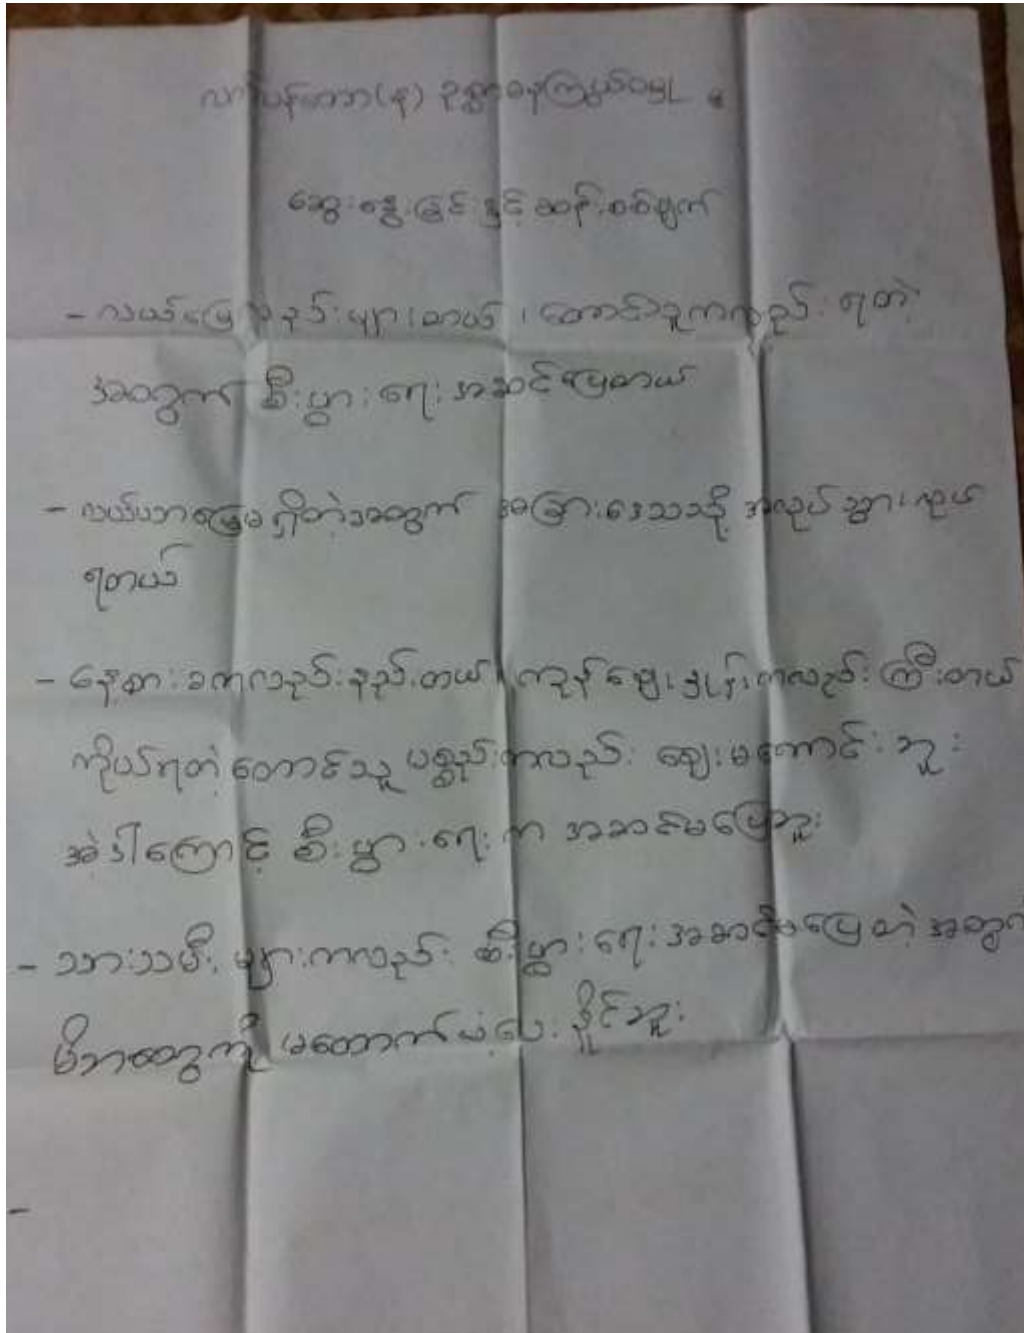 လက်ပန်တော(န) ဥစ္စာဓနကြွယ်ဝမှု
ဆွေးနွေးခြင်းနှင့်ဆန်းစစ်ချက်
- လယ်မြေလည်းများတယ်၊ တောင်သူကလည်း ရတဲ့
အတွက် စီးပွားရေးအဆင်ပြေတယ်
- လယ်ယာမြေမရှိတဲ့အတွက် အခြားဒေသသို့ အလုပ်သွားလုပ်
ရတယ်
- နေ့စားခကလည်းနည်းတယ်၊ ကုန်ဈေးနှုန်းကလည်း ကြီးတယ်
ကိုယ်ရတဲ့ တောင်သူ ပစ္စည်းကလည်း ဈေးမကောင်းဘူး
အဲ့ဒါကြောင့် စီးပွားရေးက အဆင်မပြေဘူး
- သားသမီးများကလည်း စီးပွားရေးအဆင်မပြေတဲ့အတွက်
မိဘတွေကို မထောက်ပံ့ပေးနိုင်ဘူး
-